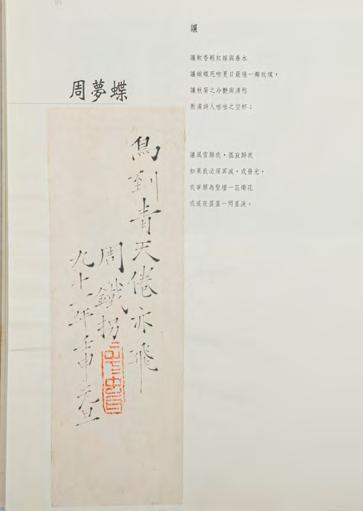 讓
讓軟香輕紅嫁與春水
讓蝴蝶死吻夏日最後一瓣玫瑰,
讓秋菊之冷艷與清愁
酌滿詩人咄咄之空杯;
讓風雪歸我,孤寂歸我
如果我必須冥滅,或發光,
我寧願為聖壇一蕊燭花
或遙夜盈盈一閃星淚。
周夢蝶
鳥到青天倦亦飛
周鐵拐
九十二年壬申元旦